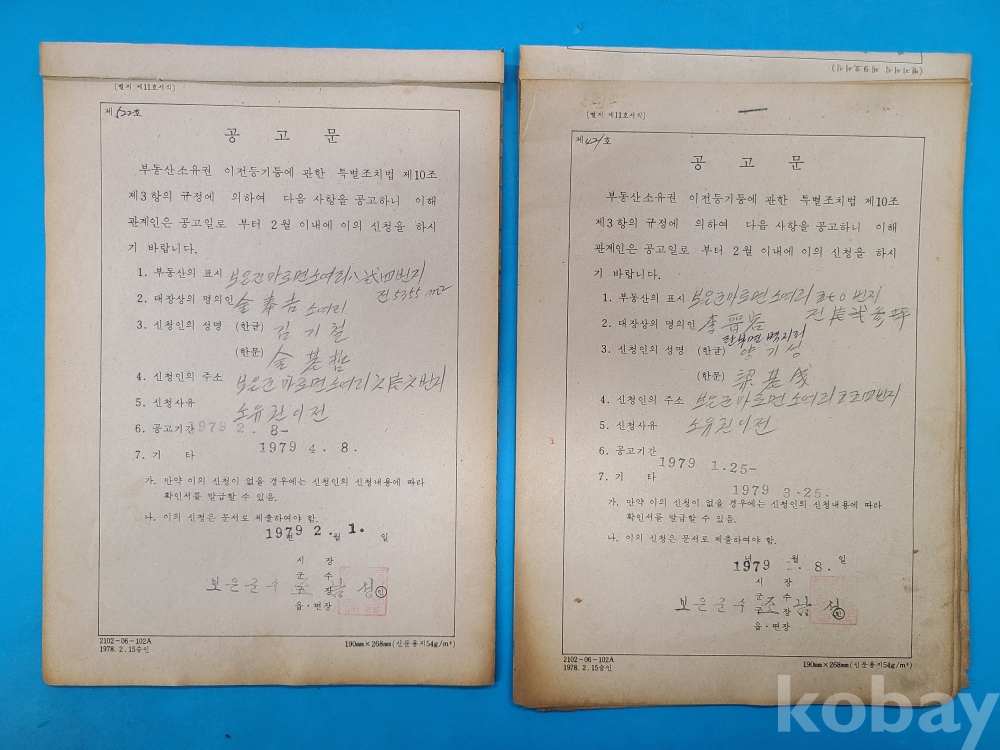 [별지 제11호서식]
제522호
공 고 문
부동산소유권 이전등기등에 관한 특별조치법 제10조
제3항의 규정에 의하여 다음 사항을 공고하니 이해
관계인은 공고일로 부터 2월 이내에 이의 신청을 하시
기 바랍니다.
1. 부동산의 표시 보은군마로면소여리 번지
전5355m2
2. 대장상의 명의인 金 吉 소여리
3. 신청인의 성명 (한글) 김기철
(한문) 金基哲
4. 신청인의 주소 보은군마로면소여리 번지
5. 신청사유 소유권이전
6. 공고기간 1979 2. 8-
7. 기 타 1979 4. 8.
가. 만약 이의 신청이 없을 경우에는 신청인의 신청내용에 따라
확인서를 발급할 수 있음.
나. 이의 신청은 문서로 제출하여야 함.
1979년 2월 1일
시 장
군 수
구 장
읍·면장
보은군수 조남성 ㊞
2102-06-102A
1978. 2. 15승인
190mm×268mm(신문용지54g/m²)
(별지서식 제9호서식)
[별지 제11호서식]
제421호
공 고 문
부동산소유권 이전등기등에 관한 특별조치법 제10조
제3항의 규정에 의하여 다음 사항을 공고하니 이해
관계인은 공고일로 부터 2월 이내에 이의 신청을 하시
기 바랍니다.
1. 부동산의 표시 보은군마로면소여리 번지
2. 대장상의 명의인 李 전
탄부면벽지리
3. 신청인의 성명 (한글) 양기성
(한문) 梁基成
4. 신청인의 주소 보은군마로면소여리 번지
5. 신청사유 소유권이전
6. 공고기간 1979 1.25-
7. 기 타 1979 3.25.
가. 만약 이의 신청이 없을 경우에는 신청인의 신청내용에 따라
확인서를 발급할 수 있음.
나. 이의 신청은 문서로 제출하여야 함.
1979년 월 8. 일
시 장
군 수
구 장
읍·면장
보은군수 조남성 ㊞
2102-06-102A
1978. 2. 15승인
190mm×268mm(신문용지54g/m²)
kobay